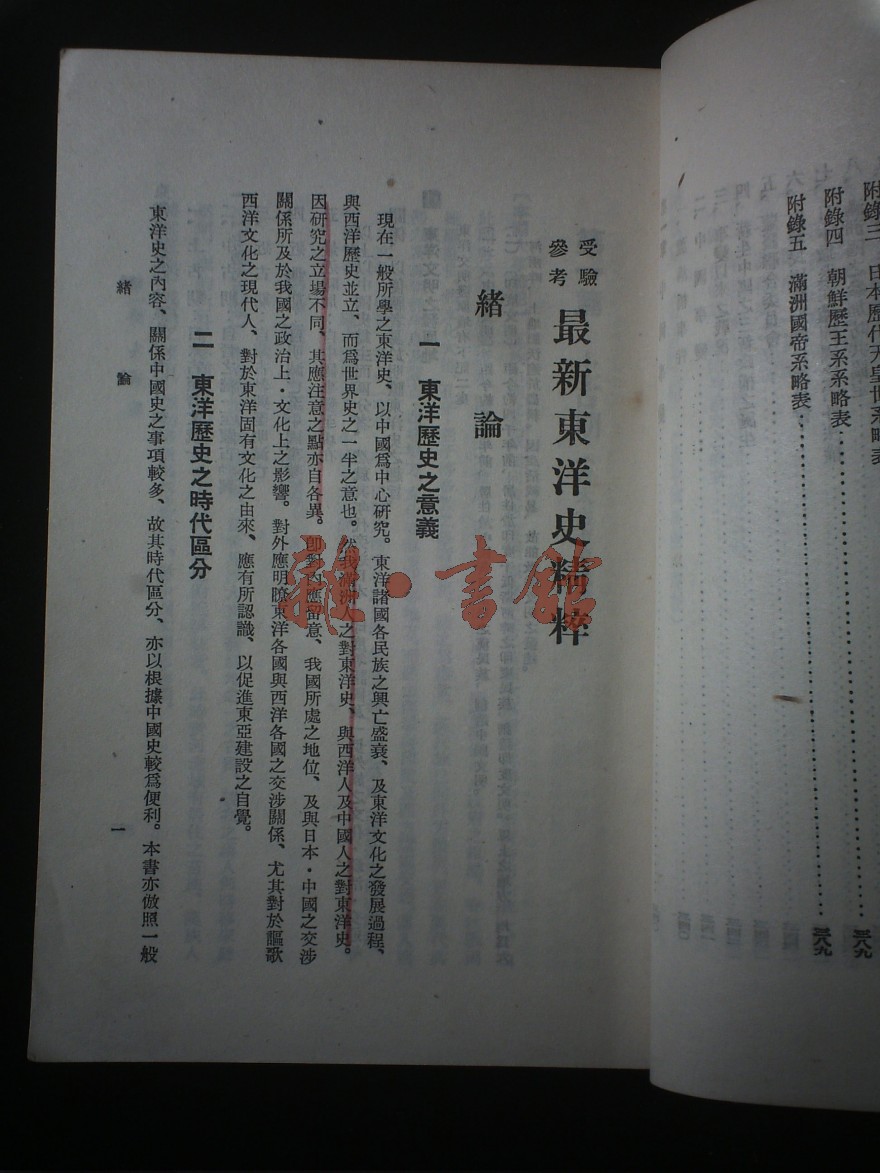 附錄三　日本歷代天皇世系略表
附錄四　朝鮮歷王系系略表……………三八九
附錄五　滿洲國帝系略表……………三八九
受驗
參考
最新東洋史精粹
緒　論
一　東洋歷史之意義
現在一般所學之東洋史、以中國爲中心研究。東洋諸國各民族之興亡盛衰、及東洋文化之發展過程、
與西洋歷史並立、而爲世界史之一半之意也。然我滿洲人之對東洋史、與西洋人及中國人之對東洋史。
因研究之立場不同、其應注意之點亦自各異。卽對內應留意、我國所處之地位、及與日本・中國之交涉
關係所及於我國之政治上・文化上之影響。對外應明瞭東洋各國與西洋各國之交涉關係、尤其對於謳歌
西洋文化之現代人、對於東洋固有文化之由來、應有所認識、以促進東亞建設之自覺。
二　東洋歷史之時代區分
東洋史之內容、關係中國史之事項較多、故其時代區分、亦以根據中國史較爲便利。本書亦倣照一般
緒　論
一
書館